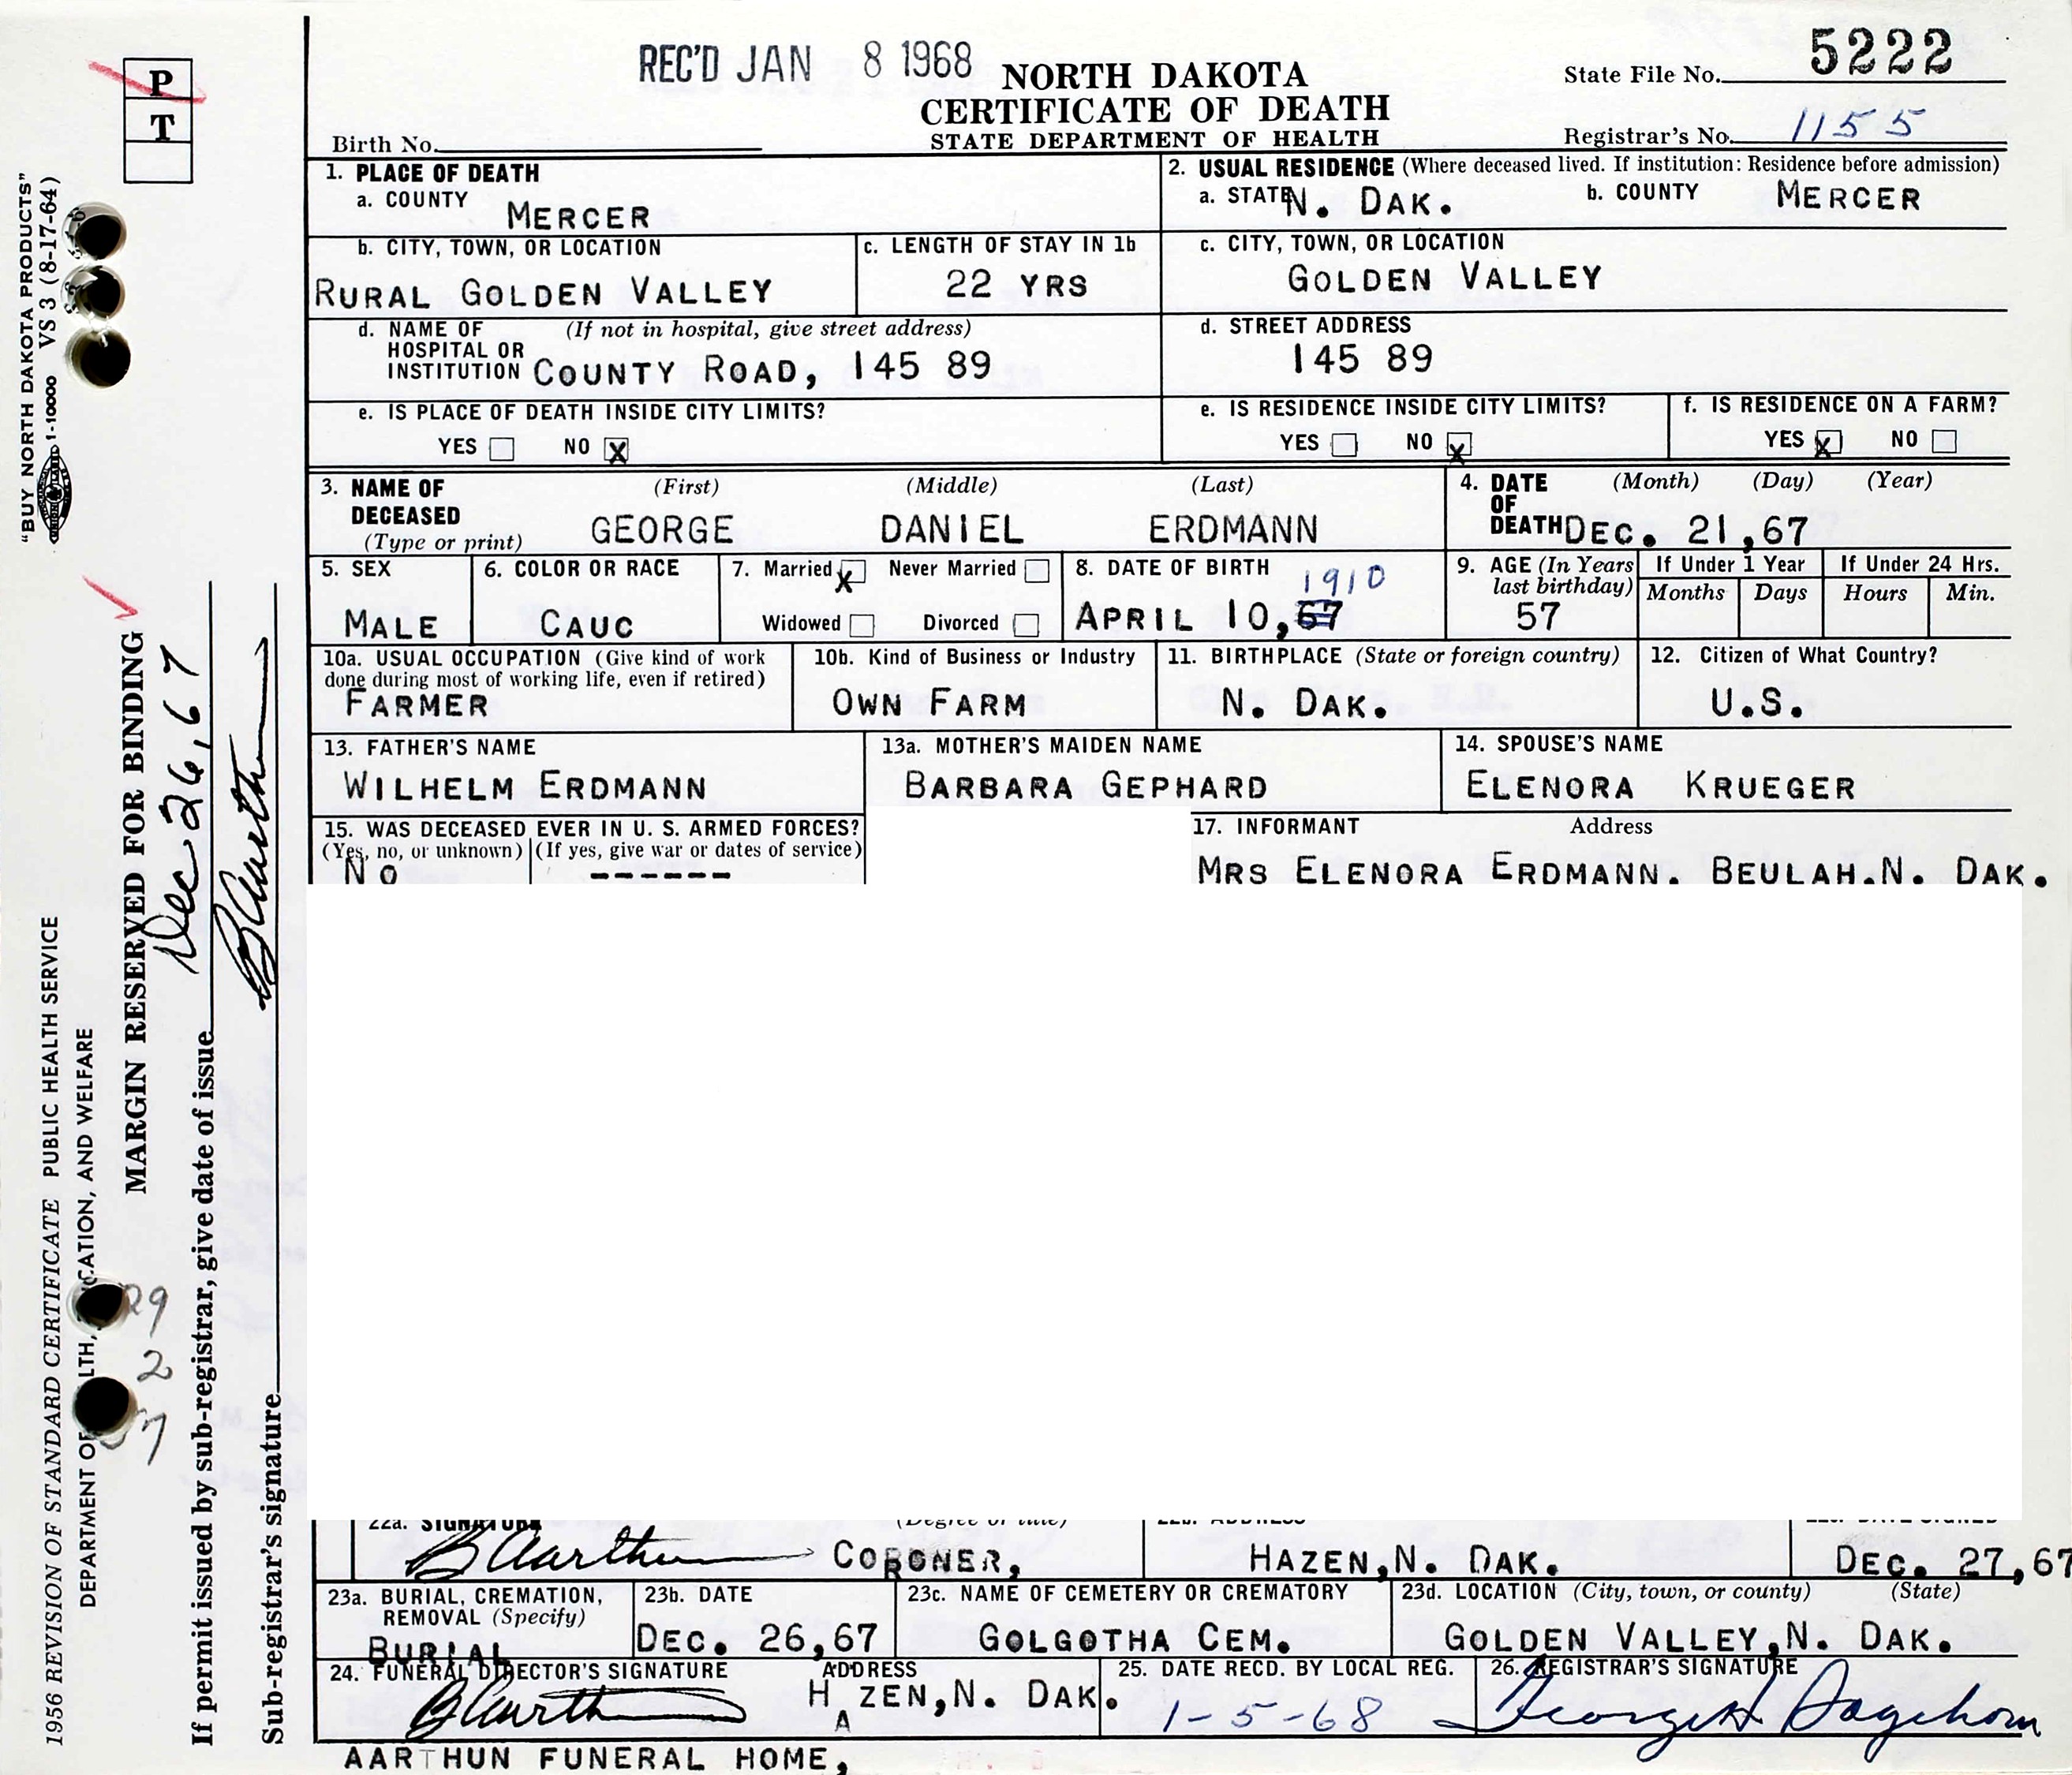 REC'D JAN 8 1968
NORTH DAKOTA
CERTIFICATE OF DEATH
STATE DEPARTMENT OF HEALTH
State File No. 5222
Registrar's No. 1155
Birth No.
P
T
1. PLACE OF DEATH
a. COUNTY MERCER
2. USUAL RESIDENCE (Where deceased lived. If institution: Residence before admission)
a. STATE N. DAK. b. COUNTY MERCER
b. CITY, TOWN, OR LOCATION
RURAL GOLDEN VALLEY
c. LENGTH OF STAY IN 1b
22 YRS
c. CITY, TOWN, OR LOCATION
GOLDEN VALLEY
d. NAME OF HOSPITAL OR INSTITUTION (If not in hospital, give street address)
COUNTY ROAD, 145 89
d. STREET ADDRESS
145 89
e. IS PLACE OF DEATH INSIDE CITY LIMITS?
YES NO X
e. IS RESIDENCE INSIDE CITY LIMITS?
YES NO X
f. IS RESIDENCE ON A FARM?
YES X NO
3. NAME OF DECEASED (Type or print)
(First) (Middle) (Last)
GEORGE DANIEL ERDMANN
4. DATE OF DEATH (Month) (Day) (Year)
DEC. 21,67
5. SEX
MALE
6. COLOR OR RACE
CAUC
7. Married X Never Married
Widowed Divorced
8. DATE OF BIRTH
1910
APRIL 10,67
9. AGE (In Years last birthday)
57
If Under 1 Year
Months Days
If Under 24 Hrs.
Hours Min.
10a. USUAL OCCUPATION (Give kind of work
done during most of working life, even if retired)
FARMER
10b. Kind of Business or Industry
OWN FARM
11. BIRTHPLACE (State or foreign country)
N. DAK.
12. Citizen of What Country?
U.S.
13. FATHER'S NAME
WILHELM ERDMANN
13a. MOTHER'S MAIDEN NAME
BARBARA GEPHARD
14. SPOUSE'S NAME
ELENORA KRUEGER
15. WAS DECEASED EVER IN U. S. ARMED FORCES?
(Yes, no, or unknown) (If yes, give war or dates of service)
NO ------
17. INFORMANT Address
MRS ELENORA ERDMANN. BEULAH.N. DAK.
22a. SIGNATURE (Degree or title)
B Aarthun CORONER,
22b. ADDRESS
HAZEN,N. DAK.
22c. DATE SIGNED
DEC. 27,67
23a. BURIAL, CREMATION,
REMOVAL (Specify)
BURIAL
23b. DATE
DEC. 26,67
23c. NAME OF CEMETERY OR CREMATORY
GOLGOTHA CEM.
23d. LOCATION (City, town, or county) (State)
GOLDEN VALLEY,N. DAK.
24. FUNERAL DIRECTOR'S SIGNATURE ADDRESS
B Aarthun HAZEN,N. DAK.
AARTHUN FUNERAL HOME,
25. DATE RECD. BY LOCAL REG.
1-5-68
26. REGISTRAR'S SIGNATURE
George H Sagehorn
"BUY NORTH DAKOTA PRODUCTS"
VS 3 (8-17-64)
1-10000
1956 REVISION OF STANDARD CERTIFICATE PUBLIC HEALTH SERVICE
DEPARTMENT OF LTH, CATION, AND WELFARE
MARGIN RESERVED FOR BINDING
If permit issued by sub-registrar, give date of issue Dec 26, 67
Sub-registrar's signature B Aarthun
29
2
7